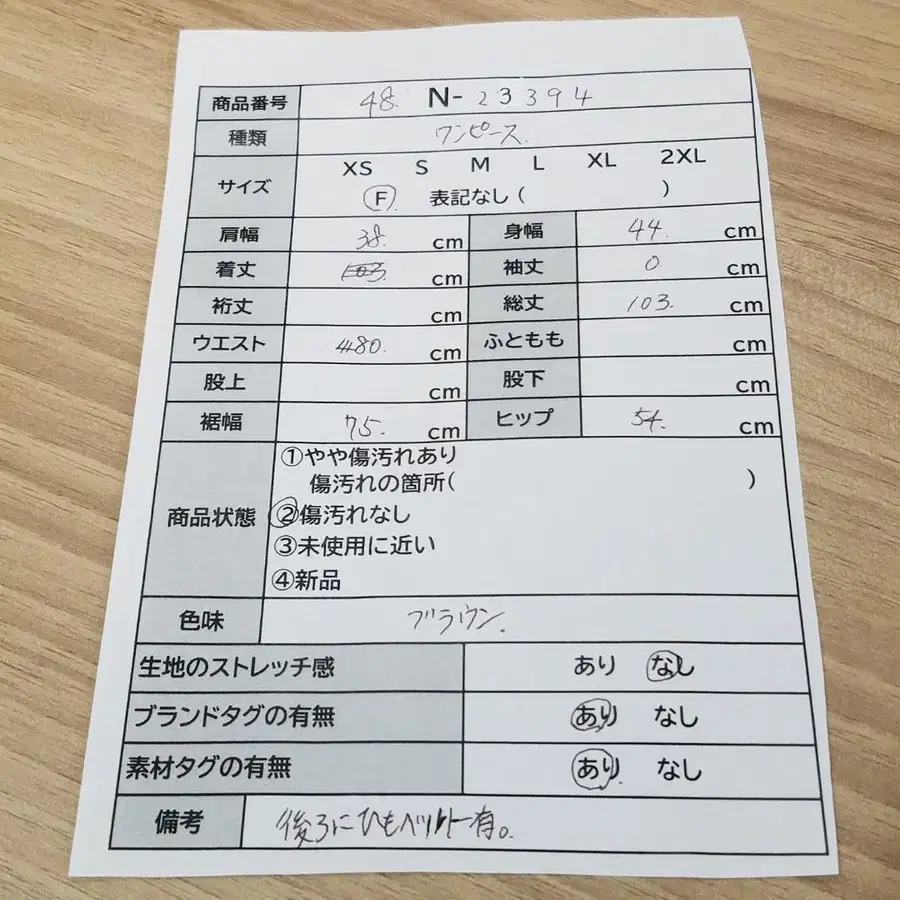 商品番号 48. N-23394
種類 ワンピース.
サイズ XS S M L XL 2XL
F 表記なし( )
肩幅 38. cm 身幅 44. cm
着丈 103. cm 袖丈 0 cm
裄丈 cm 総丈 103. cm
ウエスト 80. cm ふともも cm
股上 cm 股下 cm
裾幅 75. cm ヒップ 54. cm
商品状態 ①やや傷汚れあり
傷汚れの箇所( )
②傷汚れなし
③未使用に近い
④新品
色味 ブラウン.
生地のストレッチ感 あり なし
ブランドタグの有無 あり なし
素材タグの有無 あり なし
備考 後ろにひもベルト有。